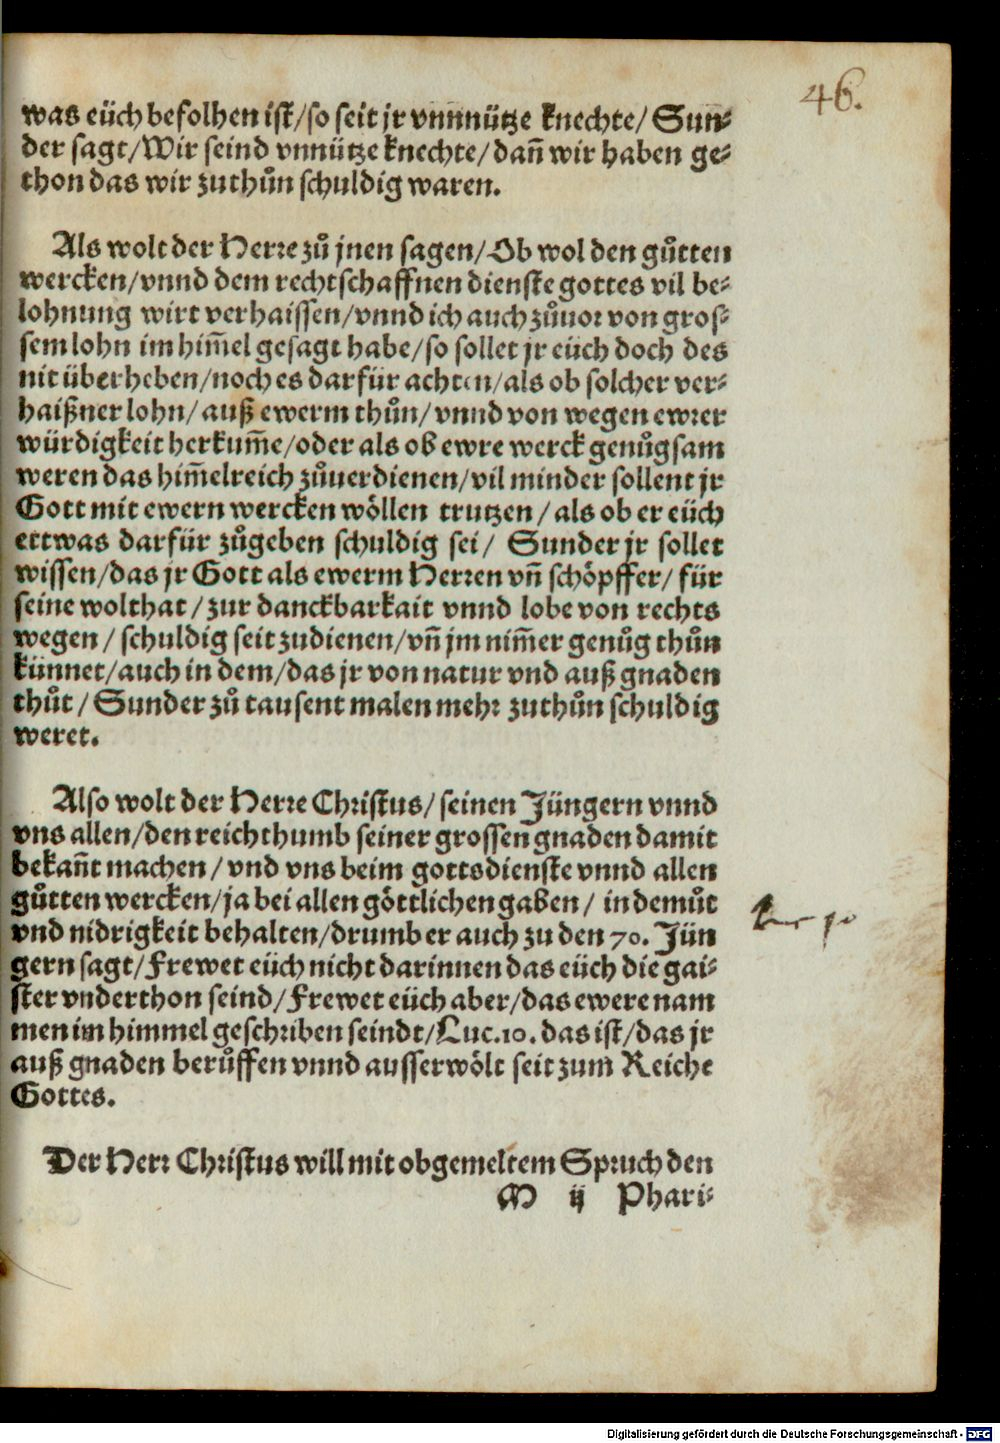 46.
was eüch befolhen ist/so seit jr vnnnütze knechte/Sun-
der sagt/Wir seind vnnütze knechte/dañ wir haben ge-
thon das wir zuthůn schuldig waren.
Als wolt der Herre zů jnen sagen/Ob wol den gůtten
wercken/vnnd dem rechtschaffnen dienste gottes vil be-
lohnung wirt verhaissen/vnnd ich auch zůuor von gros-
sem lohn im him̃el gesagt habe/so sollet jr eüch doch des
nit überheben/noch es darfür achten/als ob solcher ver-
haißner lohn/auß ewerm thůn/vnnd von wegen ewrer
würdigkeit herkum̃e/oder als ob ewre werck genůgsam
weren das him̃elreich zůuerdienen/vil minder sollent jr
Gott mit ewern wercken wöllen trutzen/als ob er eüch
ettwas darfür zůgeben schuldig sei/ Sunder jr sollet
wissen/das jr Gott als ewerm Herren vñ schöpffer/für
seine wolthat/zur danckbarkait vnnd lobe von rechts
wegen/schuldig seit zudienen/vñ jm nim̃er genůg thůn
künnet/auch in dem/das jr von natur vnd auß gnaden
thůt/Sunder zů tausent malen mehr zuthůn schuldig
weret.
Also wolt der Herre Christus/seinen Jüngern vnnd
vns allen/den reichthumb seiner grossen gnaden damit
bekañt machen/vnd vns beim gottsdienste vnnd allen
gůtten wercken/ja bei allen göttlichen gaben/ in demůt
vnd nidrigkeit behalten/drumb er auch zu den 70. Jün
gern sagt/Frewet eüch nicht darinnen das eüch die gai-
ster vnderthon seind/Frewet eüch aber/das ewere nam
men im himmel geschriben seindt/Luc.10. das ist/das jr
auß gnaden berůffen vnnd ausserwölt seit zum Reiche
Gottes.
Der Herr Christus will mit obgemeltem Spruch den
M ij Phari-
Digitalisierung gefördert durch die Deutsche Forschungsgemeinschaft - DFG